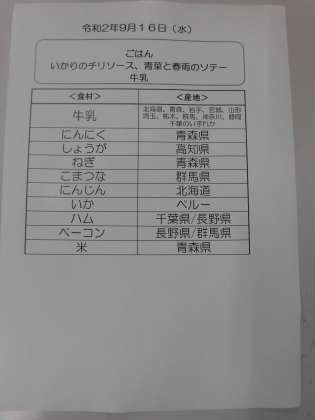 令和2年9月16日（水）
ごはん
いかりのチリソース、青菜と春雨のソテー
牛乳
＜食材＞ ＜産地＞
牛乳 北海道、青森、岩手、宮城、山形
埼玉、栃木、群馬、神奈川、静岡
千葉のいずれか
にんにく 青森県
しょうが 高知県
ねぎ 青森県
こまつな 群馬県
にんじん 北海道
いか ペルー
ハム 千葉県/長野県
ベーコン 長野県/群馬県
米 青森県